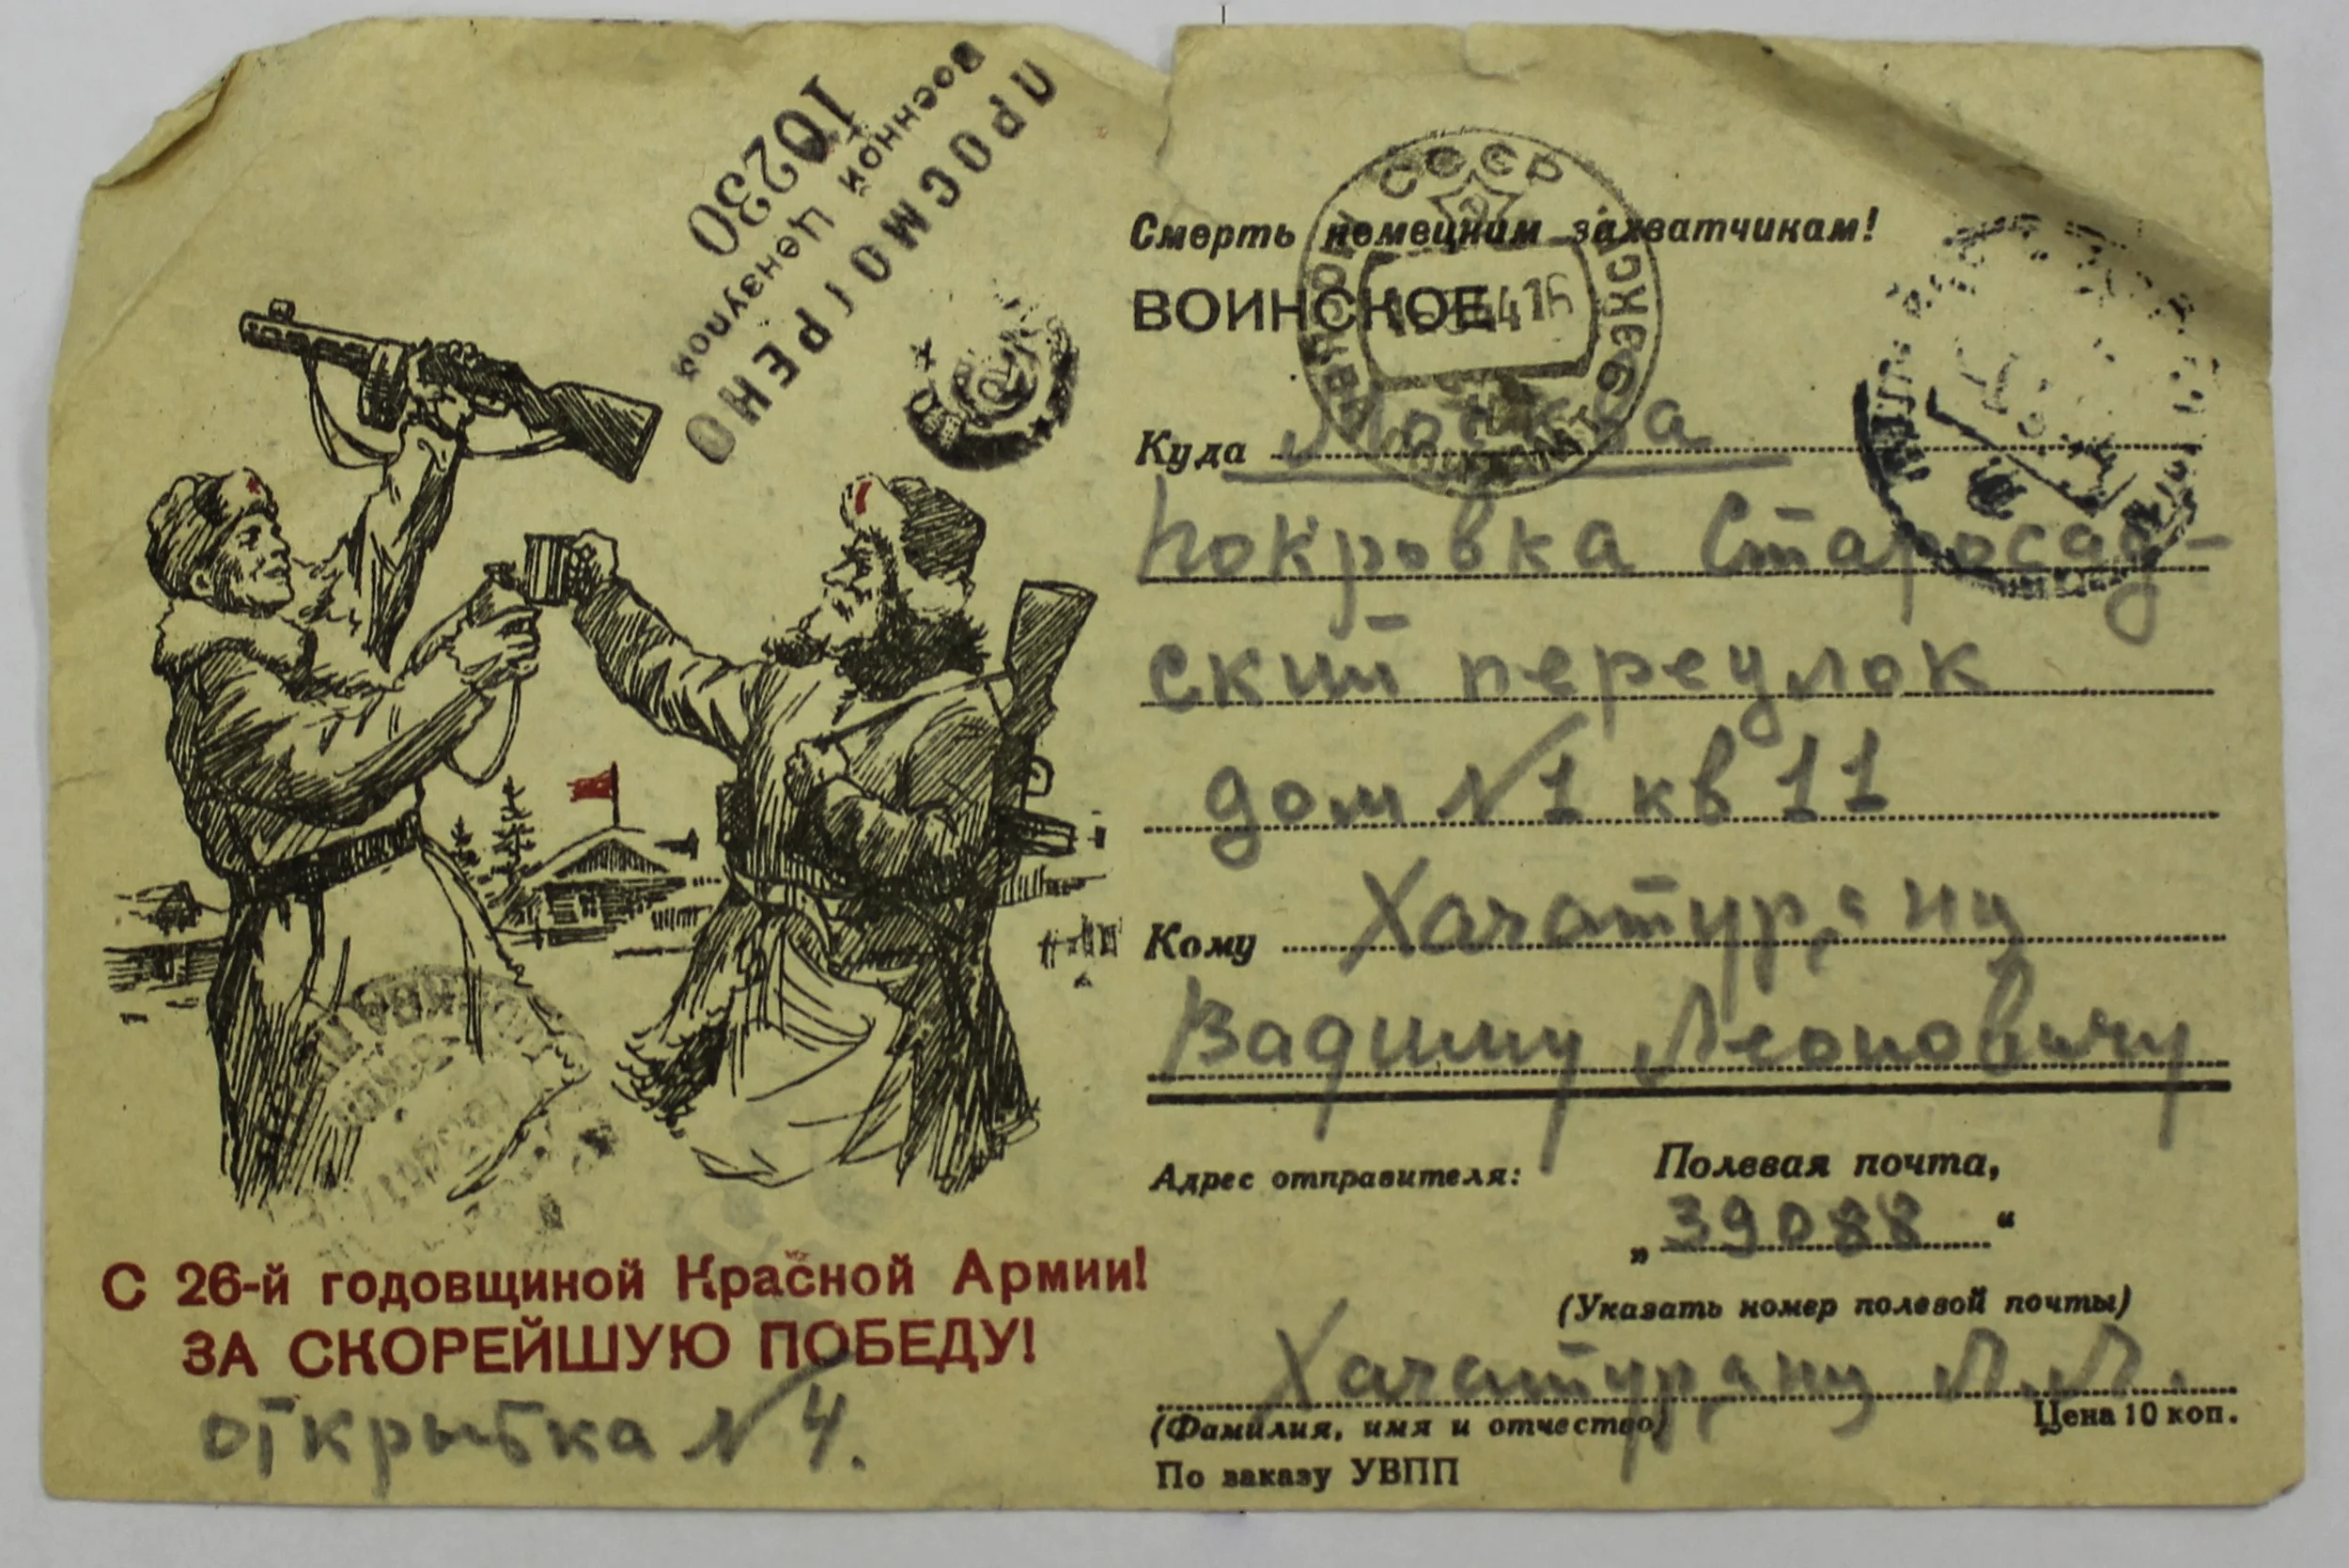 ПРОСМОТРЕНО
Военной Цензурой
10230
СССР
Смерть немецким захватчикам!
ВОИНСКОЕ
Куда Москва
Покровка Старосад-
ский переулок
дом №1 кв 11
Кому Хачатуряну
Вадиму Леоновичу
Адрес отправителя:
Полевая почта,
„39088“
(Указать номер полевой почты)
Хачатуряну Л.Л.
(Фамилия, имя и отчество)
Цена 10 коп.
По заказу УВПП
С 26-й годовщиной Красной Армии!
ЗА СКОРЕЙШУЮ ПОБЕДУ!
открытка №4.